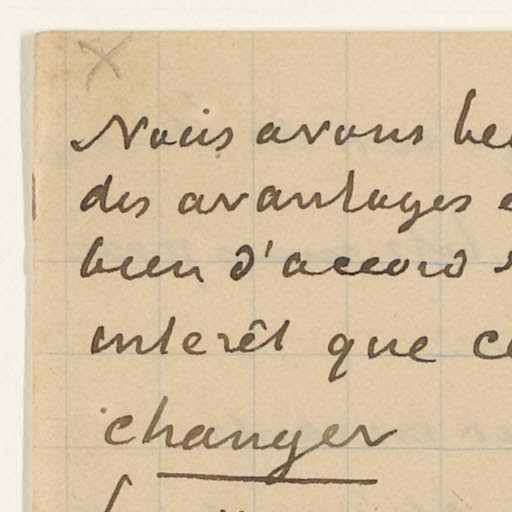 Nous avons be
des avantages e
bien d'accord s
intérêt que ce
changer